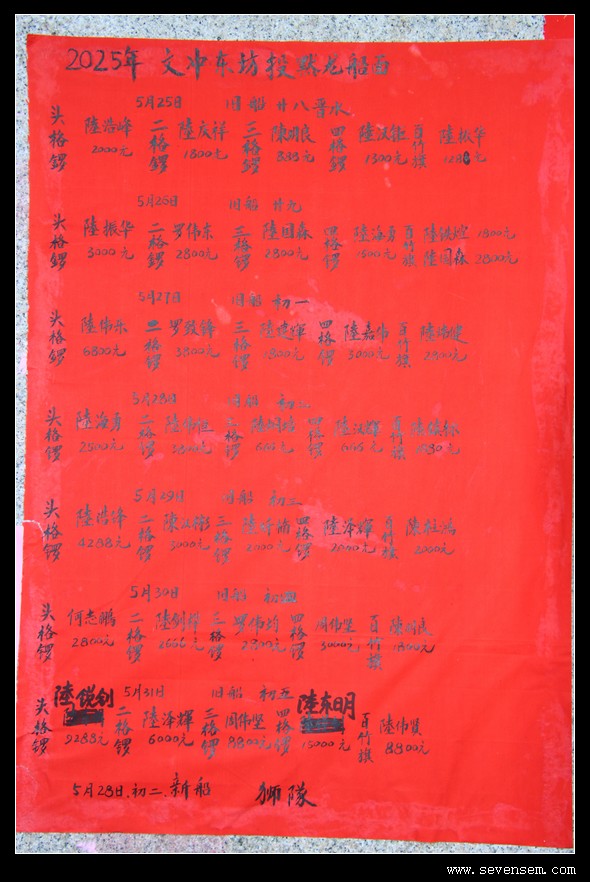 2025年 文冲东坊投點龙船百
5月25日 旧船 廿八晋水
头格锣 陸浩峰 2000元 二格锣 陸庆祥 1800元 三格锣 陳明良 838元 四格锣 陸汉钜 1300元 百竹旗 陸振华
5月26日 旧船 廿九
头格锣 陸振华 3000元 二格锣 罗伟东 2800元 三格锣 陸国森 2800元 四格锣 陸海勇 1500元 百竹旗 1800元 陸国森 2800元
5月27日 旧船 初一
头格锣 陸伟乐 6800元 二格锣 罗致锋 3800元 三格锣 陸建輝 四格锣 陸嘉伟 3000元 百竹旗 2800元
5月28日 旧船 初二
头格锣 陸海勇 2500元 二格锣 陸伟恒 三格锣 666元 四格锣 陸汉輝 666元 百竹旗
5月29日 旧船 初三
头格锣 陸浩锋 4288元 二格锣 3000元 三格锣 2000元 四格锣 陸泽輝 2000元 百竹旗 陳柱鸿 2000元
5月30日 旧船 初四
头格锣 何志鹏 2800元 二格锣 2666元 三格锣 罗伟均 四格锣 周伟坚 3000元 百竹旗 陳明良 1800元
5月31日 旧船 初五
头格锣 陸锐钊 9288元 二格锣 陸泽輝 6000元 三格锣 周伟坚 9800元 四格锣 陸东明 15000元 百竹旗 陸伟贤 8800元
5月28日.初二.新船 狮隊
www.sevensem.com